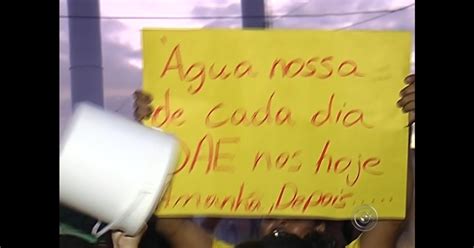 "Agua nossa
de cada dia
DAE nos hoje
Amanhã, Depois.....